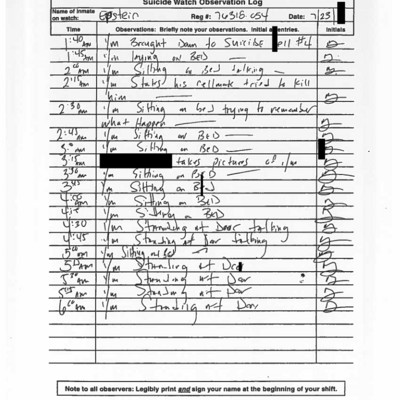 Suicide Watch Observation Log
Name of inmate on watch: Epstein Reg #: 76318 054 Date: 7/23/
Time Observations: Briefly note your observations. Initial all entries. Initials
1:40 am I/m Brought Down to Suicide Cell #4
1:45 am I/m laying on BED
2:00 am I/m Sitting on Bed talking
2:15 am I/m States his cellmate tried to kill
him
2:30 am I/m Sitting on bed trying to remember
what Happen
2:45 am I/m Sitting on BED
3:00 am I/m Sitting on BED
3:15 am takes pictures of I/m
3:30 am I/m Sitting on BED
3:45 am I/m Sitting on BED
4:00 am I/m Sitting on BED
4:15 I/m Sitting on BED
4:30 I/m Standing at Door talking
4:45 I/m Standing at Door talking
5:00 am I/m Sitting on Bed
am I/m Standing at Door
am I/m Standing at Door
am I/m Standing at Door
6:00 am I/m Standing at Door
Note to all observers: Legibly print and sign your name at the beginning of your shift.